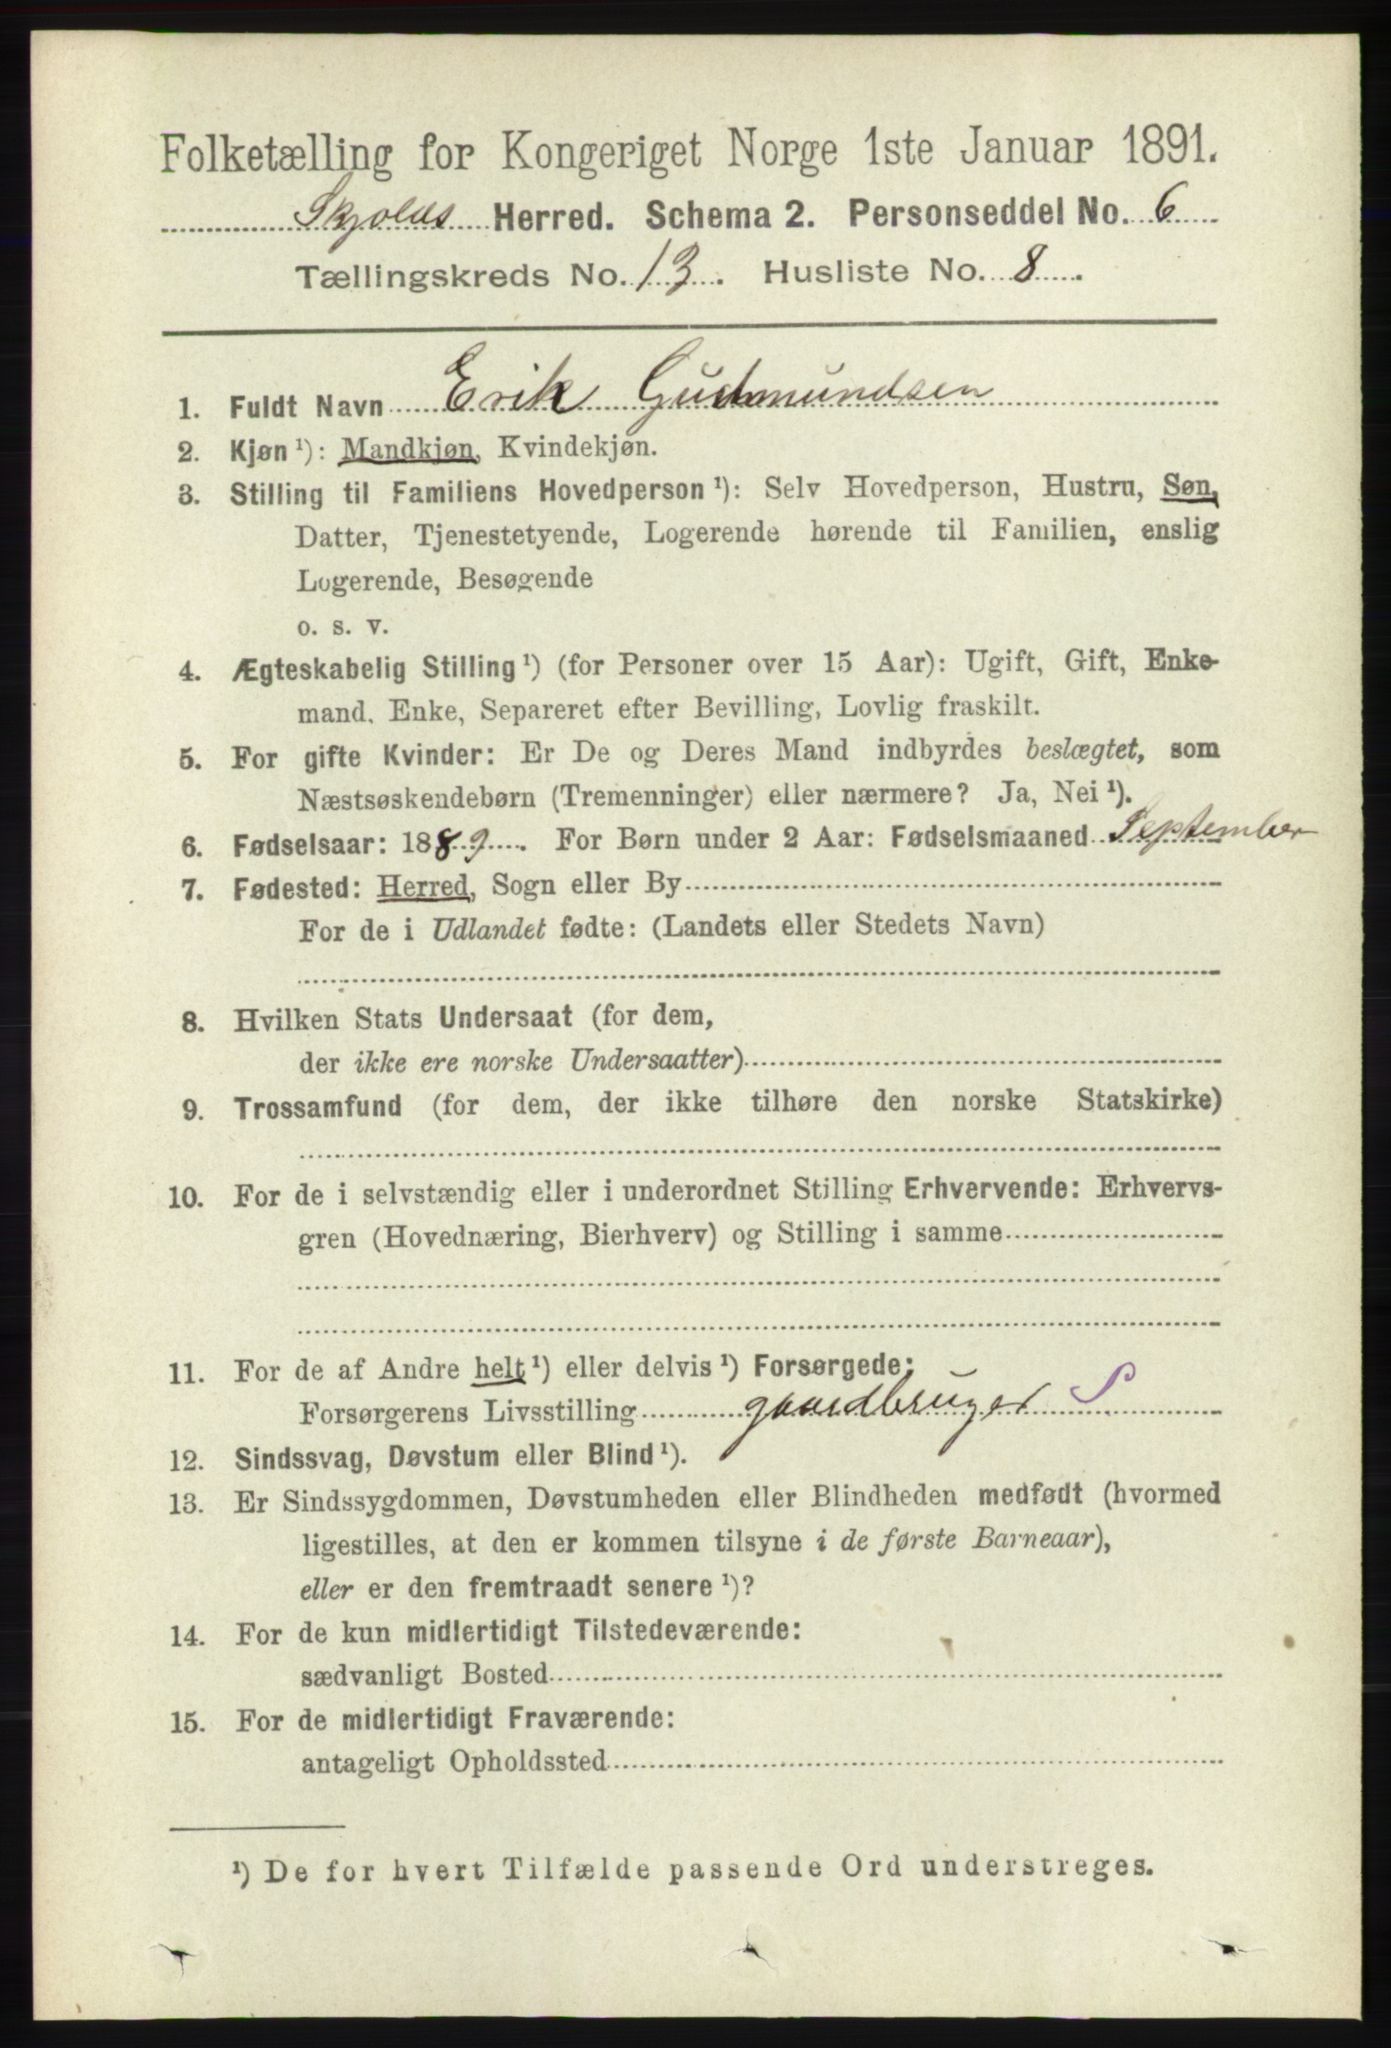 Folketælling for Kongeriget Norge 1ste Januar 1891.
Skjolds Herred. Schema 2. Personseddel No. 6
Tællingskreds No. 13. Husliste No. 8.
1. Fuldt Navn Erik Gudmundsen
2. Kjøn ¹): Mandkjøn, Kvindekjøn.
3. Stilling til Familiens Hovedperson ¹): Selv Hovedperson, Hustru, Søn,
Datter, Tjenestetyende, Logerende hørende til Familien, enslig
Logerende, Besøgende
o. s. v.
4. Ægteskabelig Stilling ¹) (for Personer over 15 Aar): Ugift, Gift, Enke-
mand, Enke, Separeret efter Bevilling, Lovlig fraskilt.
5. For gifte Kvinder: Er De og Deres Mand indbyrdes beslægtet, som
Næstsøskendebørn (Tremenninger) eller nærmere? Ja, Nei ¹).
6. Fødselsaar: 1889. For Børn under 2 Aar: Fødselsmaaned September
7. Fødested: Herred, Sogn eller By
For de i Udlandet fødte: (Landets eller Stedets Navn)
8. Hvilken Stats Undersaat (for dem,
der ikke ere norske Undersaatter)
9. Trossamfund (for dem, der ikke tilhøre den norske Statskirke)
10. For de i selvstændig eller i underordnet Stilling Erhvervende: Erhvervs-
gren (Hovednæring, Bierhverv) og Stilling i samme
11. For de af Andre helt ¹) eller delvis ¹) Forsørgede:
Forsørgerens Livsstilling gaardbruger S
12. Sindssvag, Døvstum eller Blind ¹).
13. Er Sindssygdommen, Døvstumheden eller Blindheden medfødt (hvormed
ligestilles, at den er kommen tilsyne i de første Barneaar),
eller er den fremtraadt senere ¹)?
14. For de kun midlertidigt Tilstedeværende:
sædvanligt Bosted
15. For de midlertidigt Fraværende:
antageligt Opholdssted
¹) De for hvert Tilfælde passende Ord understreges.